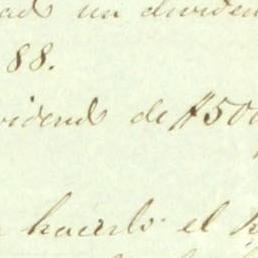 ad un dividen
88.
vidend de $500
hacerlo el